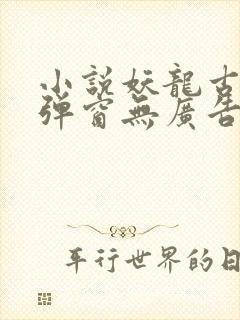 小説妖龍古
弾窗無廣告
平行世界的日